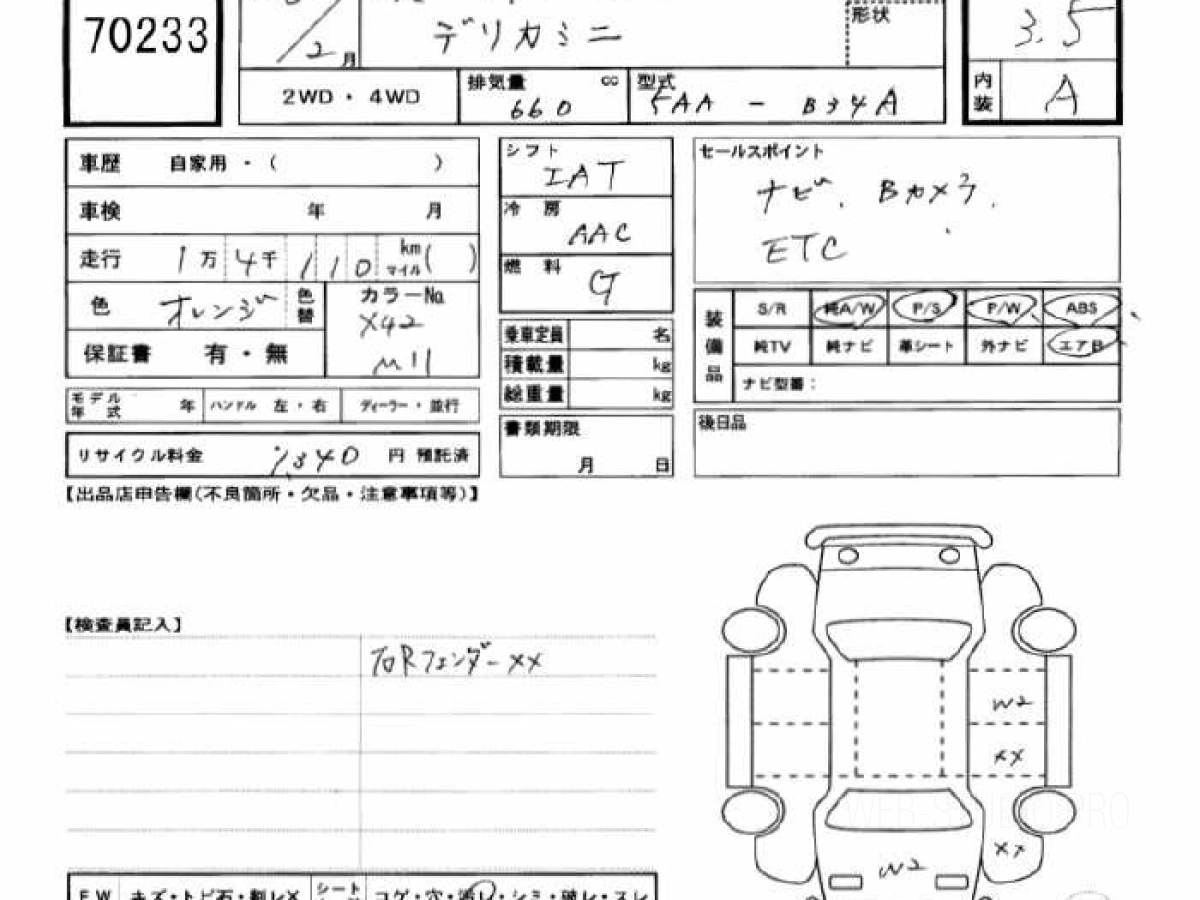 70233
2 月
デリカミニ
形状
3.5
2WD・4WD
排気量 cc
660
型式
5AA - B34A
内装
A
車歴 自家用・( )
車検 年 月
走行 1万4千110 km マイル ( )
色 オレンジ 色替
カラーNo.
X42
M11
保証書 有・無
モデル年式 年 ハンドル 左・右 ディーラー・並行
リサイクル料金 円 預託済
シフト
IAT
冷房
AAC
燃料
G
乗車定員 名
積載量 kg
総重量 kg
書類期限
月 日
セールスポイント
ナビ. Bカメラ.
ETC
装備品
S/R 純A/W P/S P/W ABS
純TV 純ナビ 革シート 外ナビ エアB
ナビ型番:
後日品
【出品店申告欄(不良箇所・欠品・注意事項等)】
【検査員記入】
右Rフェンダー XX
W2
XX
XX
W2
WEB-STUDIO PRO
FW キズ・トビ石・割レX シート コゲ・穴・汚レ・シミ・破レ・スレ